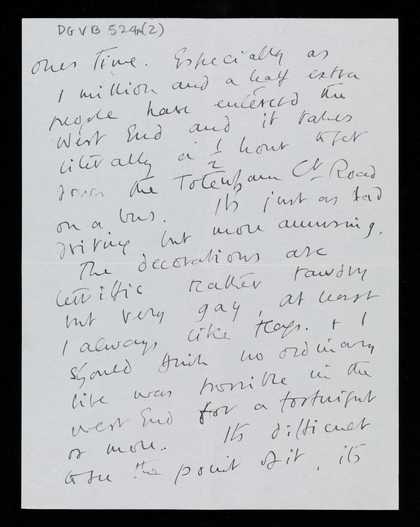 DGVB 524(2)
ones time. Especially as
1 million and a half extra
people have entered the
West End and it takes
literally a ½ hour to get
down the Totenham Ct Road
on a bus. Its just as bad
driving but more amusing.
The decorations are
terrific rather tawdry
but very gay, at least
I always like flags. & I
should think no ordinary
life was possible in the
West End for a fortnight
or more. Its difficult
to see the point of it, its